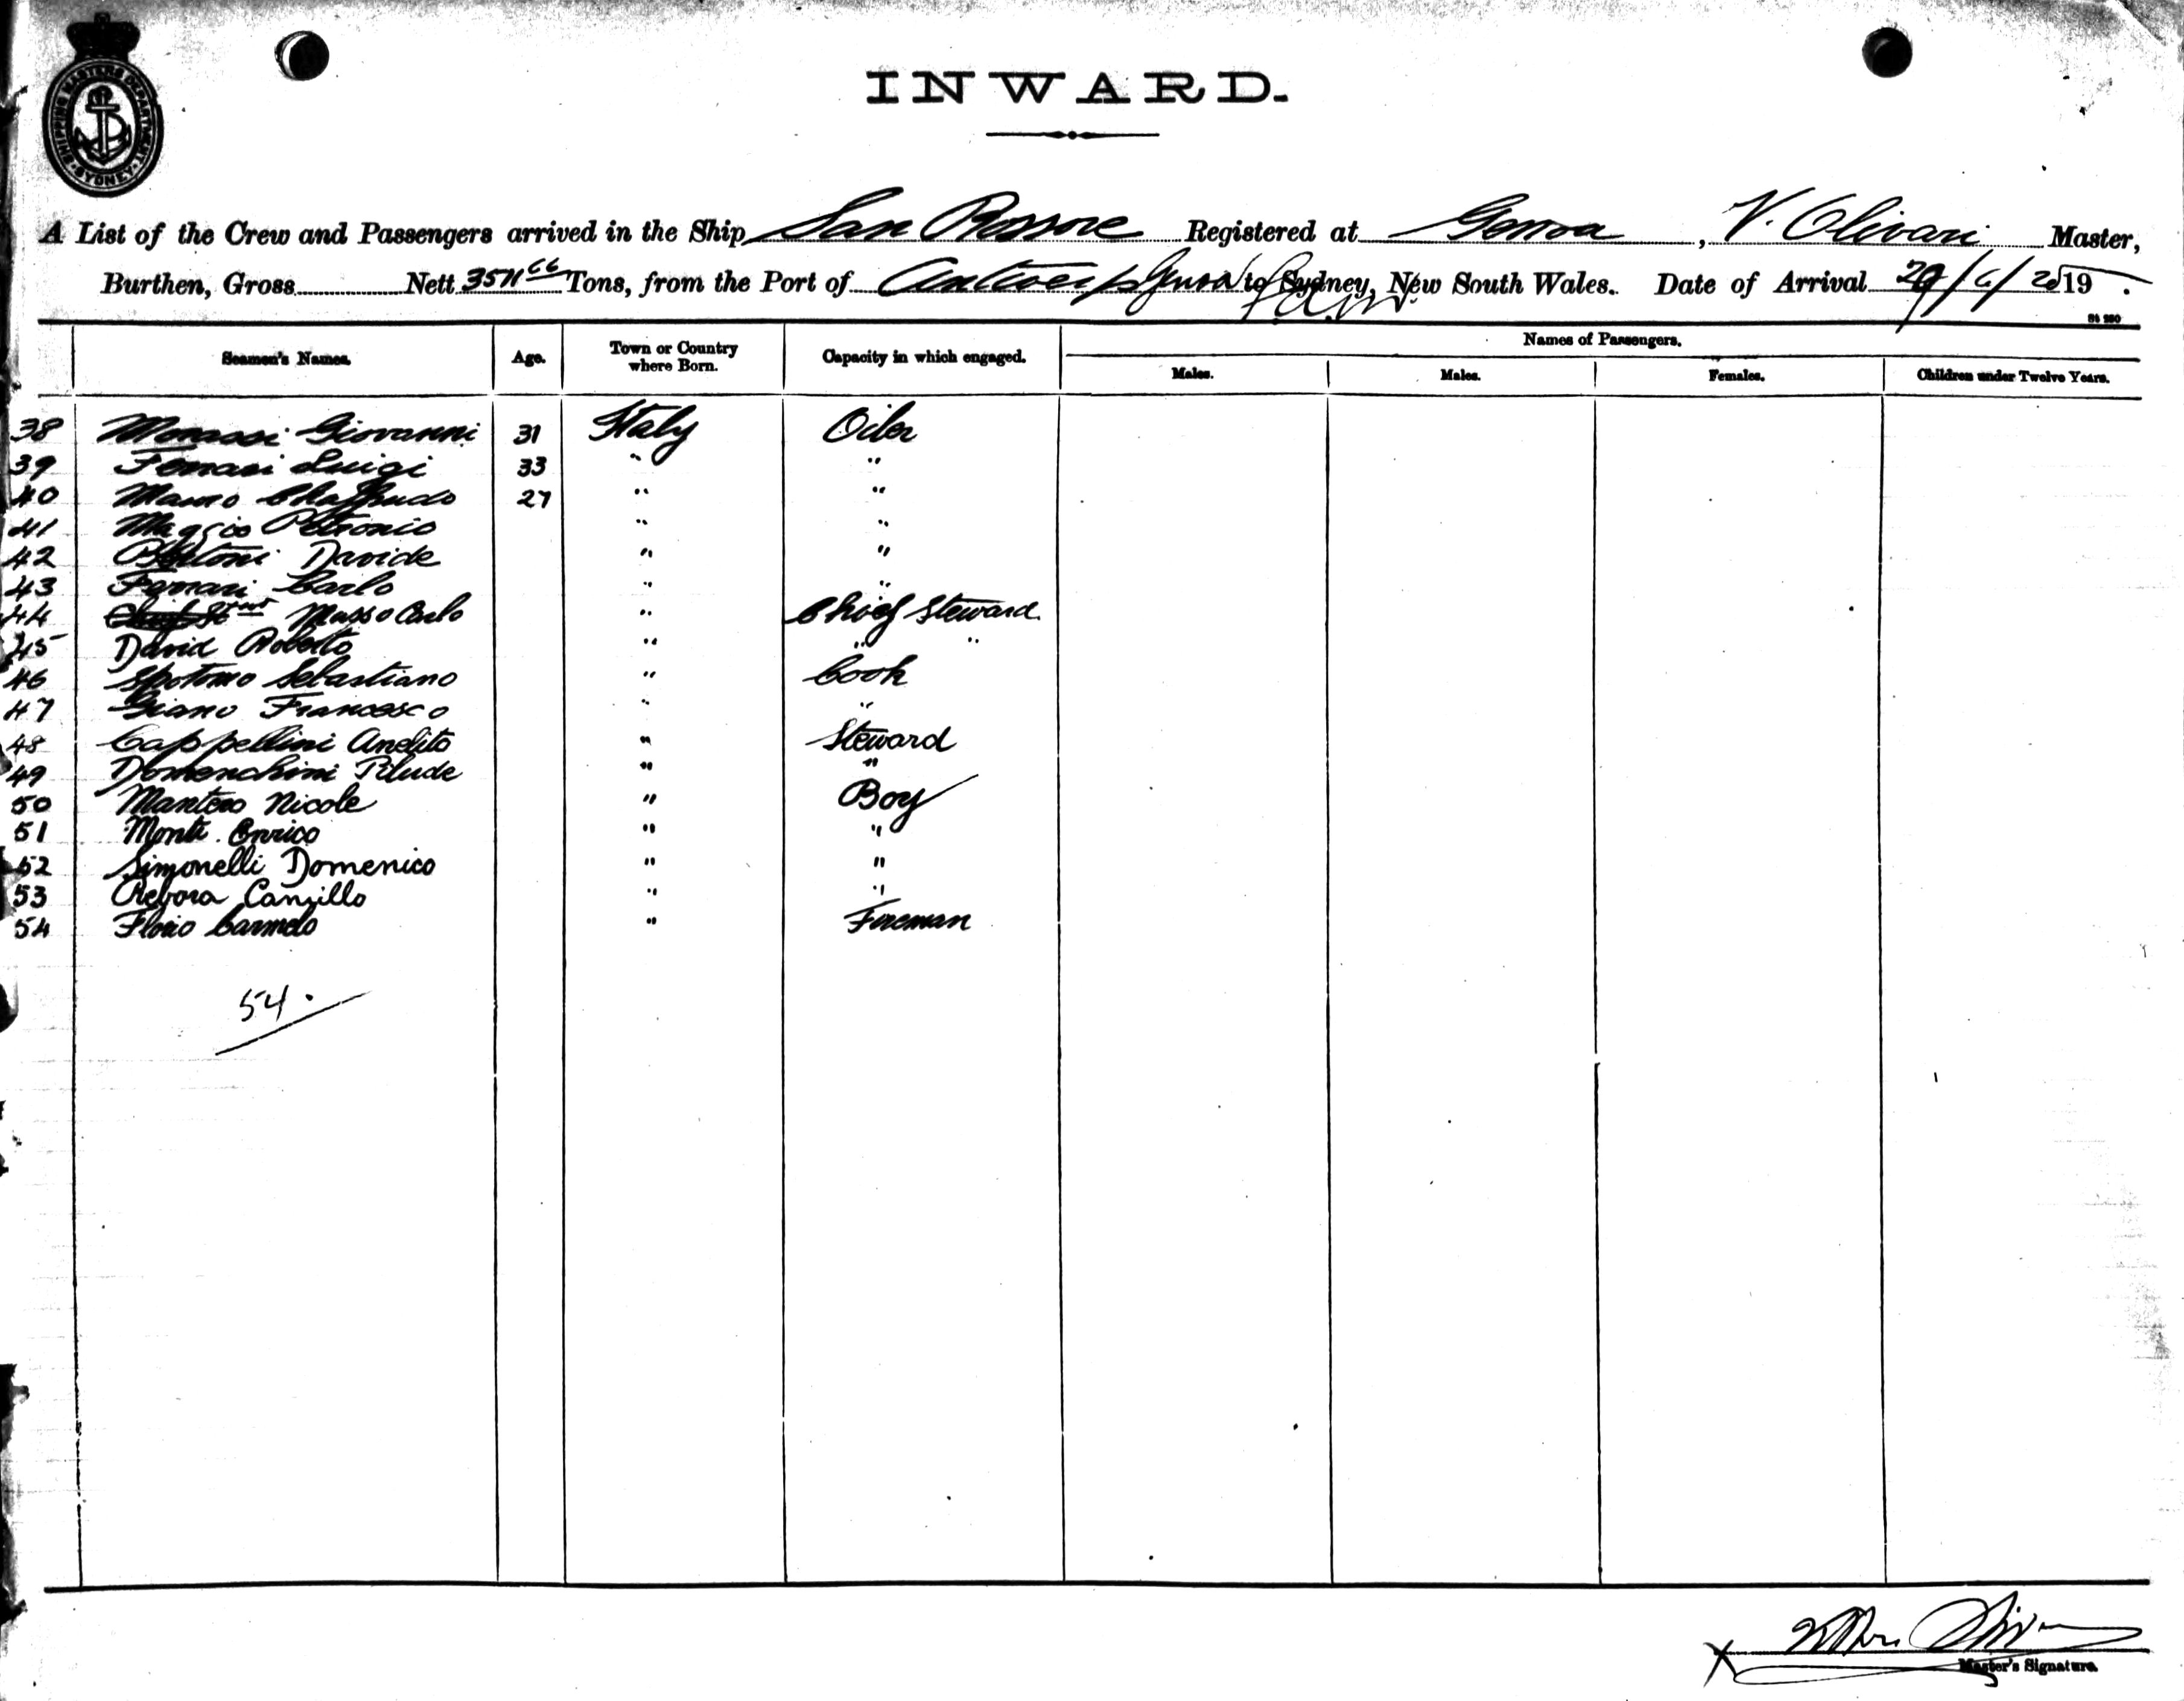 SHIPPING MASTERS DEPARTMENT SYDNEY
INWARD.
A List of the Crew and Passengers arrived in the Ship San Rossore Registered at Genoa, V. Olivari Master,
Burthen, Gross Nett 3571 66 Tons, from the Port of Antwerp Genoa to Sydney, New South Wales. Date of Arrival 29/6/20 19 .
Seamen's Names. Age. Town or Country where Born. Capacity in which engaged. Names of Passengers.
Males. Males. Females. Children under Twelve Years.
38 Giovanni 31 Italy Oiler
39 Ferrari Luigi 33 " "
40 Mauro 27 " "
41 Maggio Petronio " "
42 Bertoni Davide " "
43 Ferrari Carlo " "
44 Chief Stwd Musso Carlo " Chief Steward
45 David Roberto " " "
46 Spotorno Sebastiano " Cook
47 Giano Francesco " "
48 Cappellini " Steward
49 Domenchini " "
50 Mantero Nicole " Boy
51 Monti Enrico " "
52 Simonelli Domenico " "
53 Rebora Canzillo " "
54 Florio Carmelo " Fireman
54.
X
Master's Signature.